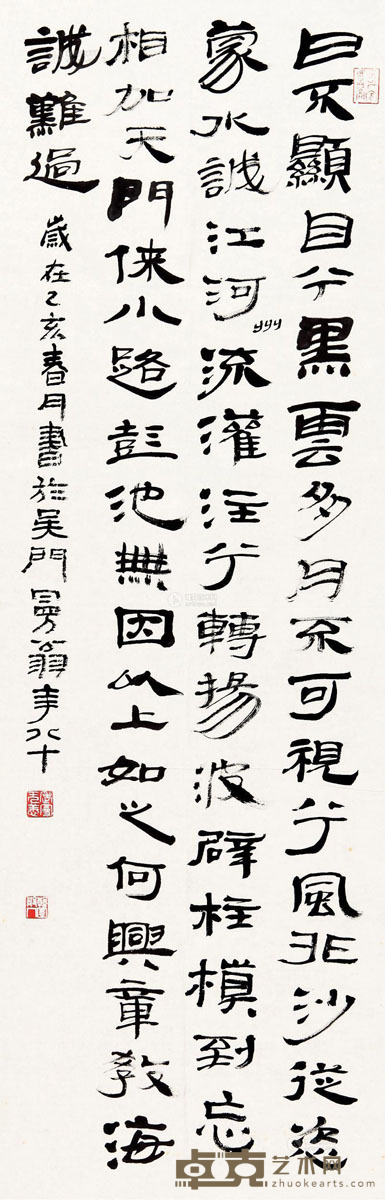 日不顯目兮黑雲多月不可視兮風非沙從恣
蒙水誠江河州流灌注兮轉揚波辟柱槙到忘
相加天門俠小路彭池無因以上如之何興章教海
誠難過 歲在乙亥春月書於吴門曼翁年八十
卓克艺术网
www.zhuokearts.com